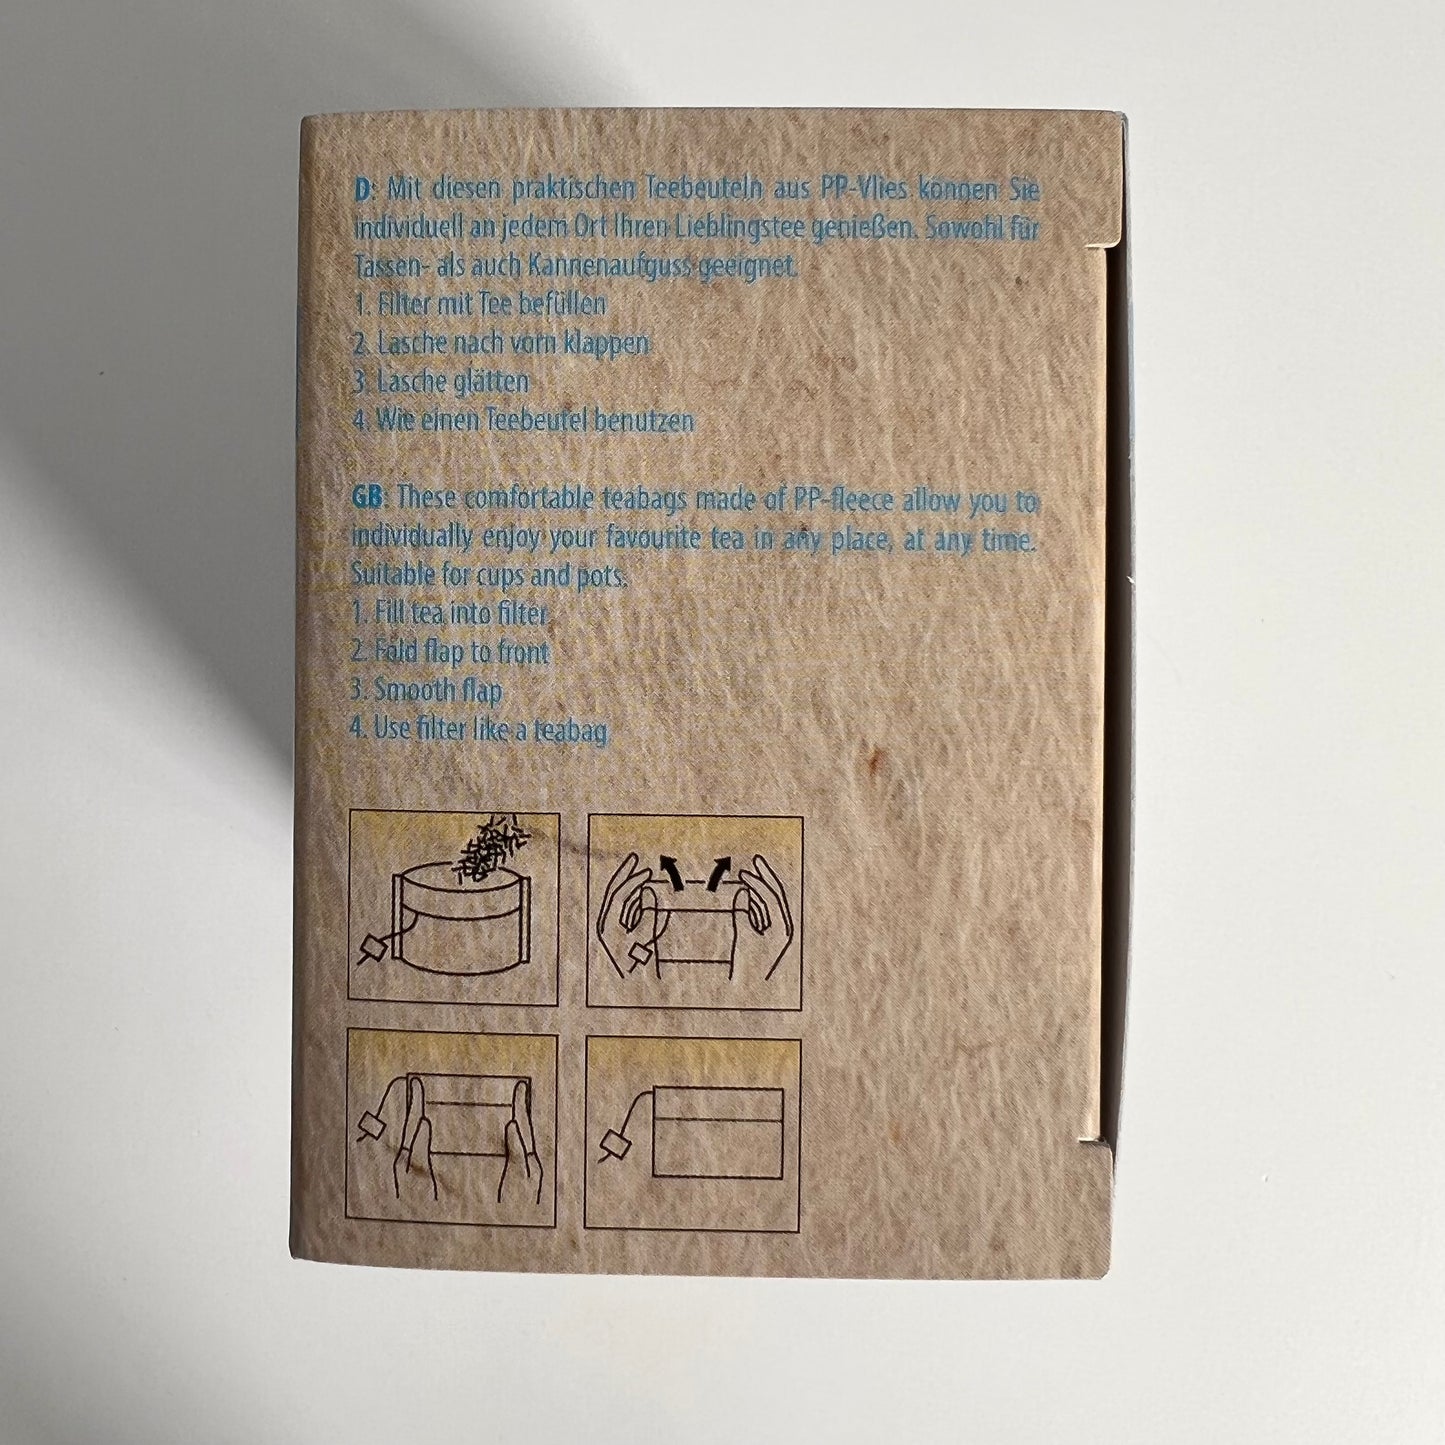 D: Mit diesen praktischen Teebeuteln aus PP-Vlies können Sie
individuell an jedem Ort Ihren Lieblingstee genießen. Sowohl für
Tassen- als auch Kannenaufguss geeignet.
1. Filter mit Tee befüllen
2. Lasche nach vorn klappen
3. Lasche glätten
4. Wie einen Teebeutel benutzen
GB: These comfortable teabags made of PP-fleece allow you to
individually enjoy your favourite tea in any place, at any time.
Suitable for cups and pots.
1. Fill tea into filter
2. Fold flap to front
3. Smooth flap
4. Use filter like a teabag